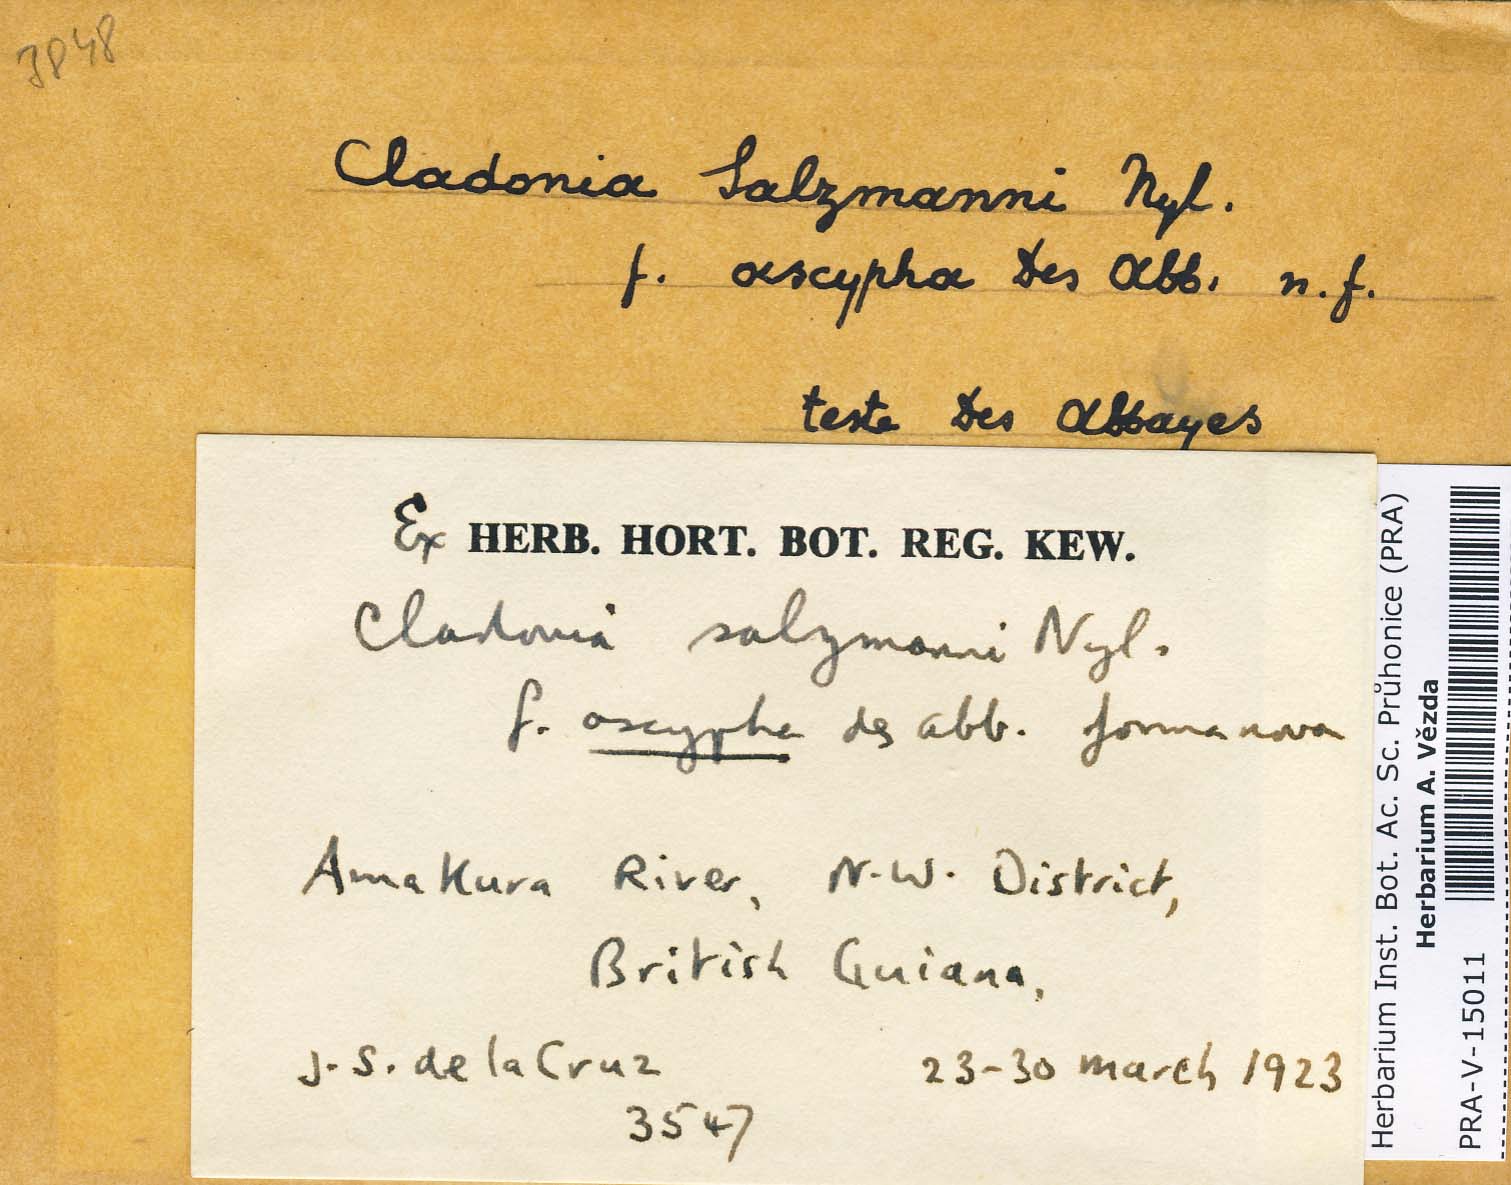 3848
Cladonia Salzmanni Nyl.
f. ascypha Des Abb. n.f.
teste Des Abbayes
Ex HERB. HORT. BOT. REG. KEW.
Cladonia salzmanni Nyl.
f. ascypha des abb. forma nova
Amakura River, N.W. District,
British Guiana,
J. S. de la Cruz 23-30 March 1923
3547
Herbarium Inst. Bot. Ac. Sc. Průhonice (PRA)
Herbarium A. Vězda
PRA-V-15011